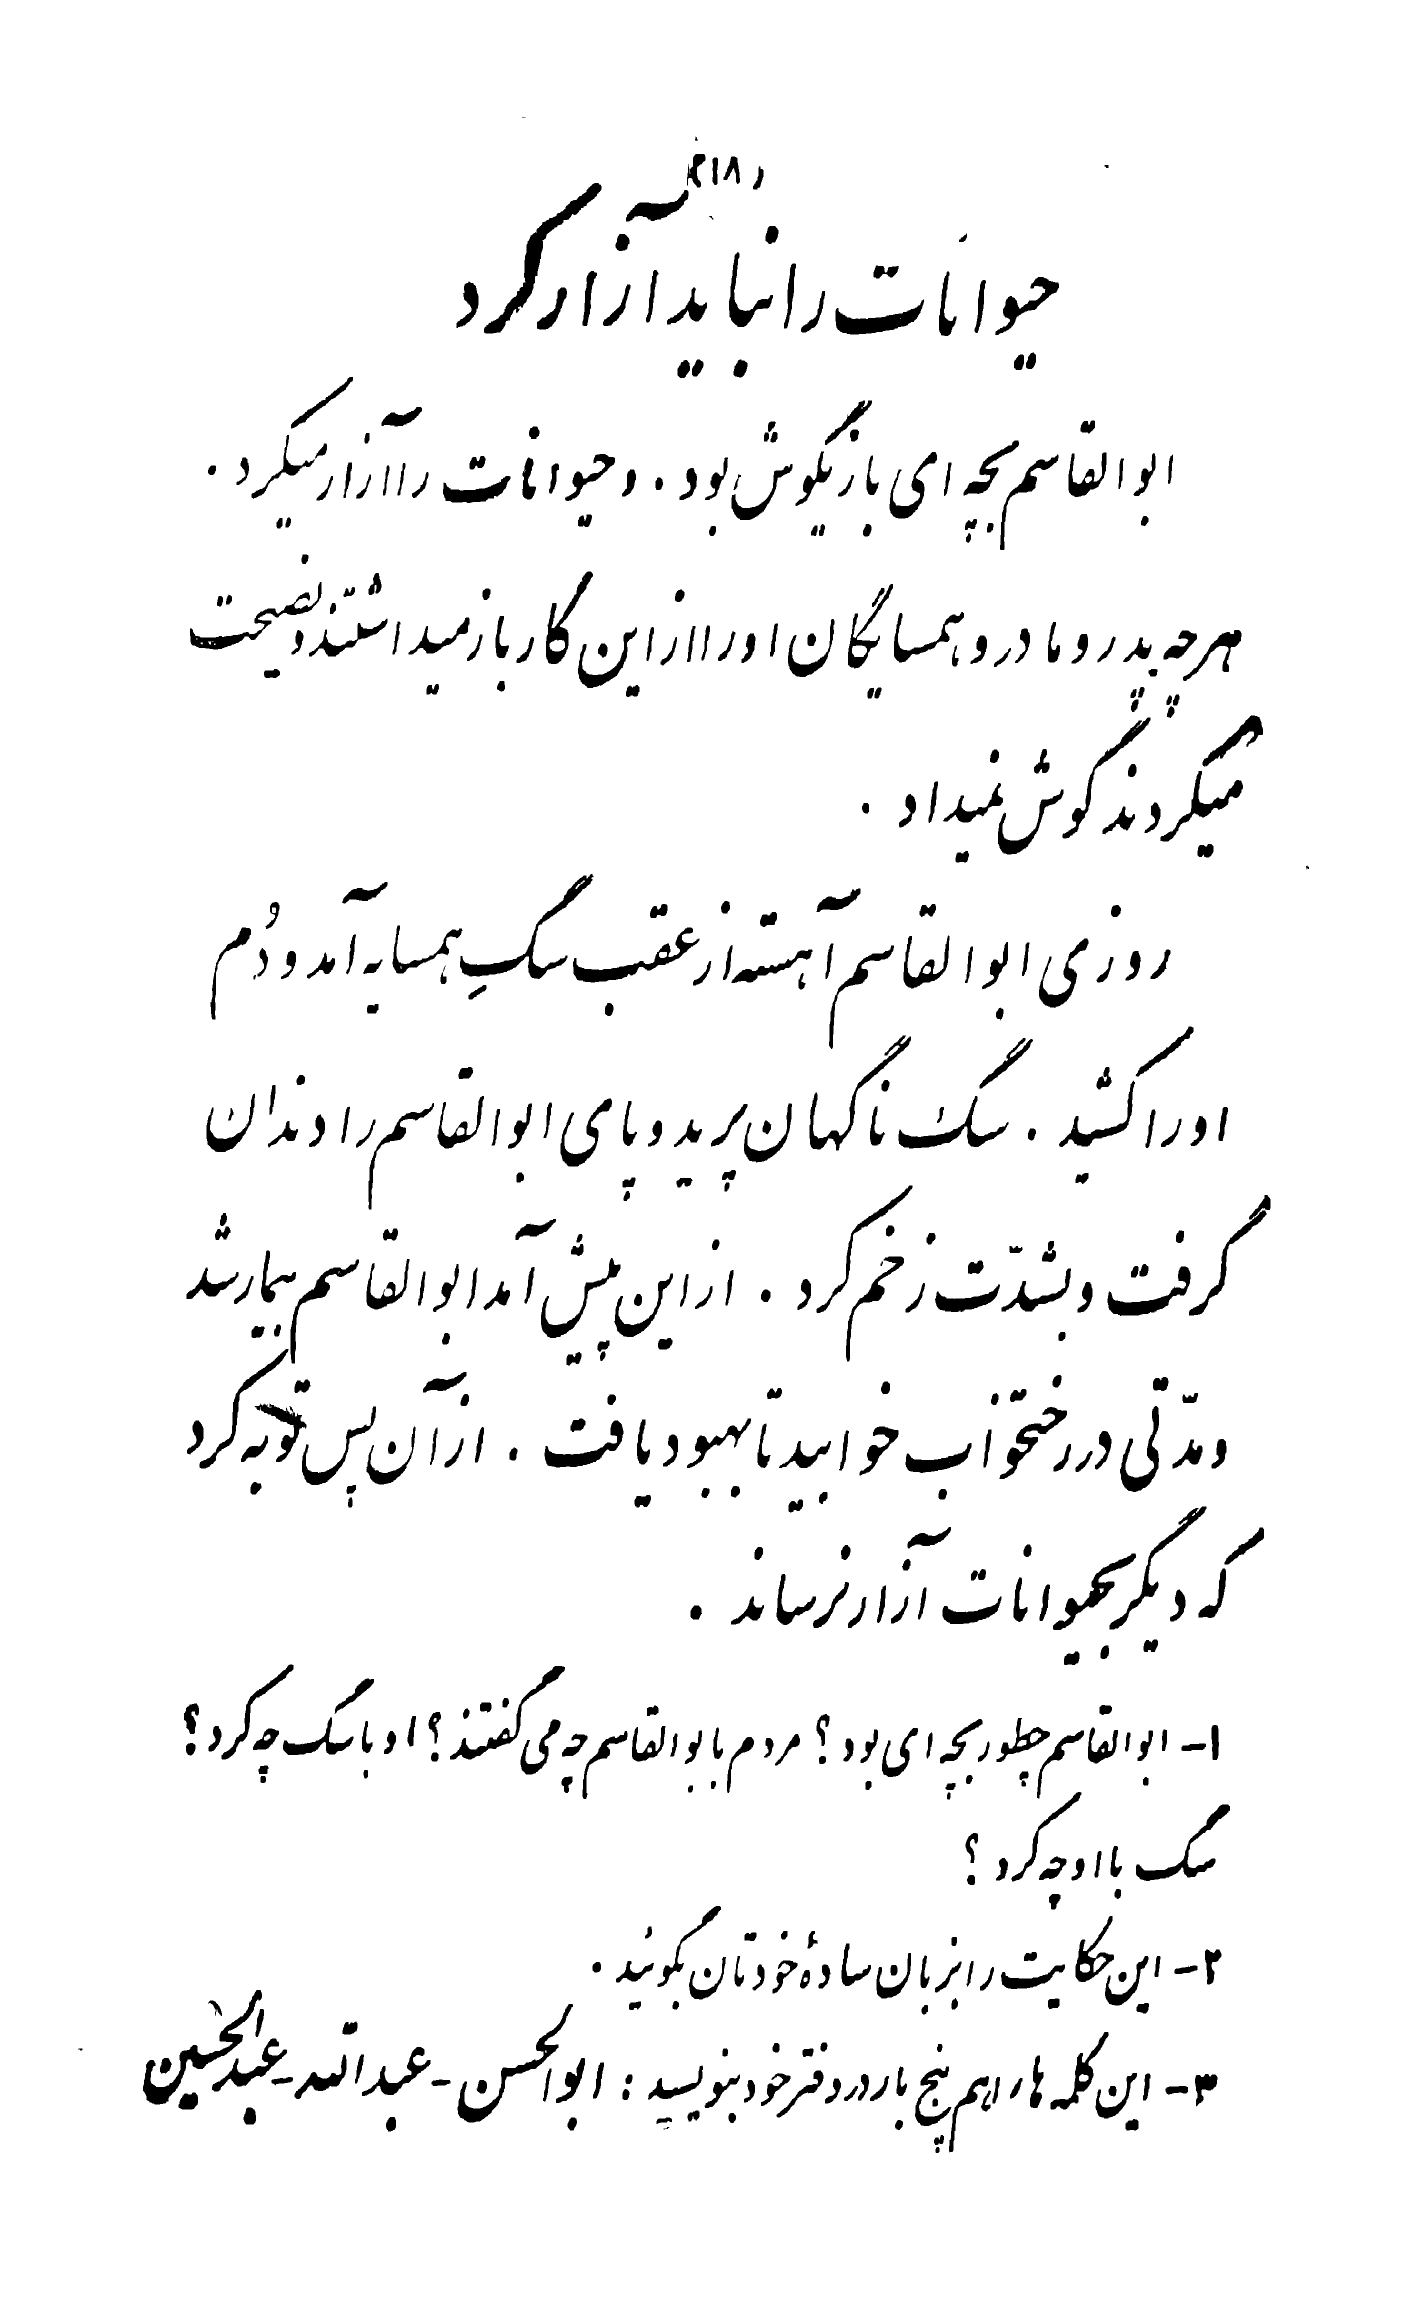 (۱۸)
حیوانات را نباید آزار کرد
ابوالقاسم بچه ای بازیگوش بود . و حیوانات را آزار میکرد .
هر چه پدر و مادر و همسایگان او را از این کار باز میداشتند و نصیحت
میکردند گوش نمیداد .
روزی ابوالقاسم آهسته از عقب سگِ همسایه آمد و دُم
او را کشید . سگ ناگهان پرید و پای ابوالقاسم را دندان
گرفت و بشدّت زخم کرد . از این پیش آمد ابوالقاسم بیمار شد
و مدّتی در رختخواب خوابید تا بهبود یافت . از آن پس توبه کرد
که دیگر بحیوانات آزار نرساند .
۱- ابوالقاسم چطور بچه ای بود ؟ مردم با بوالقاسم چه می گفتند ؟ او با سگ چه کرد ؟
سگ با او چه کرد ؟
۲- این حکایت را بزبان سادهٔ خودتان بگوئید .
۳- این کلمه ها را هم پنج بار در دفتر خود بنویسید : ابوالحسن - عبدالله - عبدالحسین